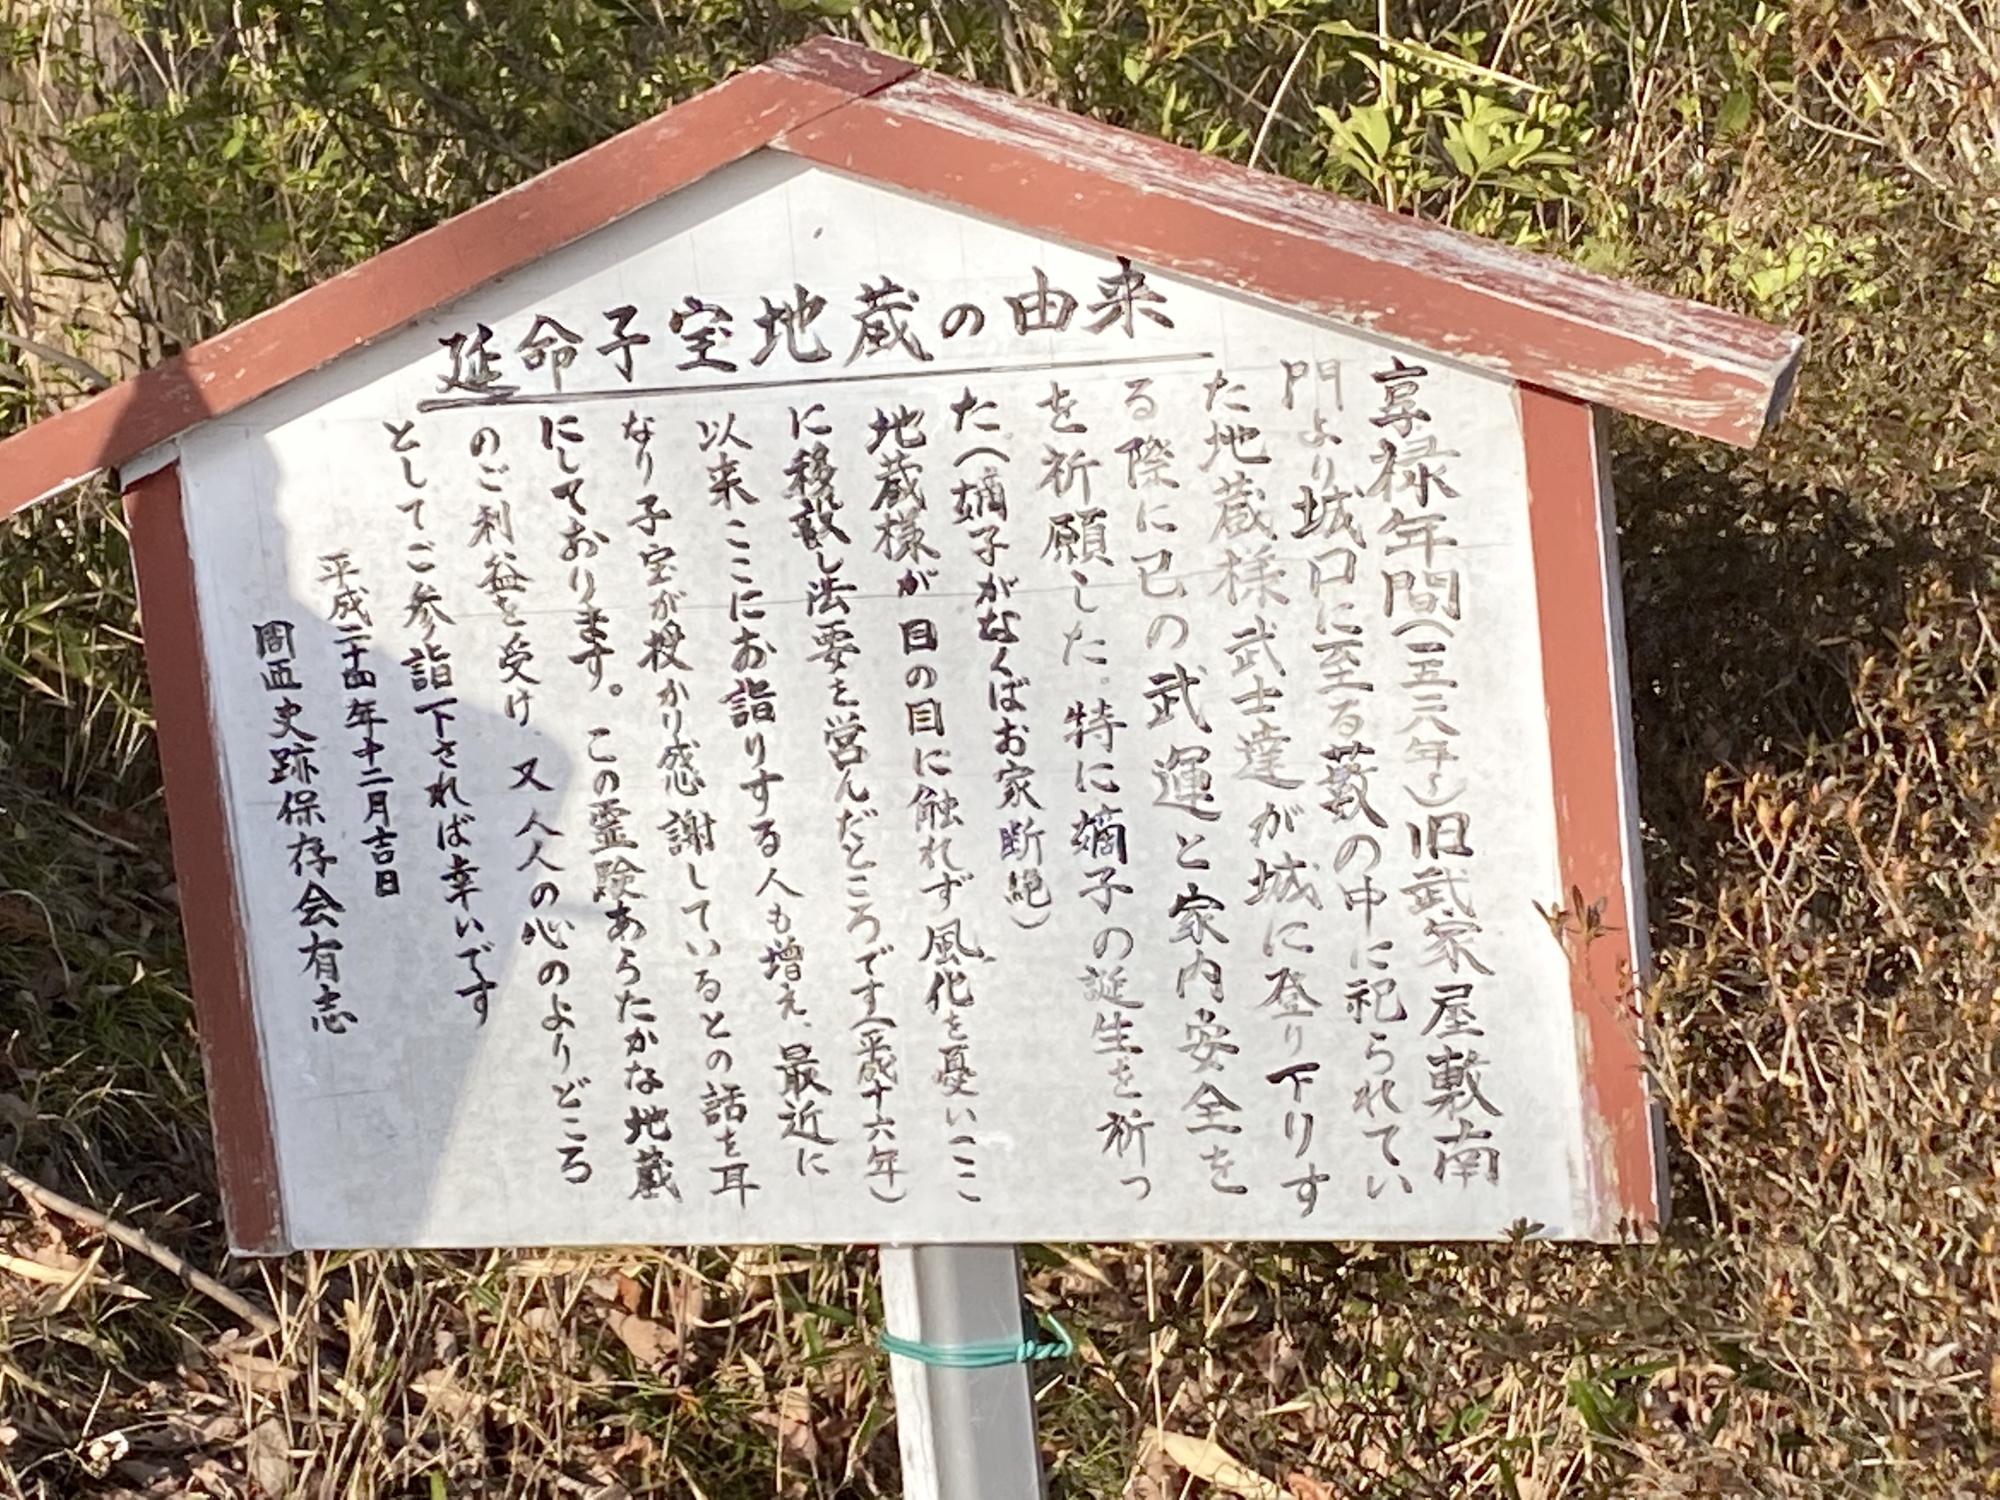 延命子宝地蔵の由来
享禄年間(一五二八年~)旧武家屋敷南
門より城口に至る薮の中に祀られてい
た地蔵様武士達が城に登り下りす
る際に己の武運と家内安全を
を祈願した。特に嫡子の誕生を祈っ
た(嫡子がなくばお家断絶)
地蔵様が目の目に触れず風化を憂いここ
に移設し法要を営んだところです(平成十六年)
以来ここにお詣りする人も増え、最近に
なり子宝が授かり感謝しているとの話を耳
にしております。この霊験あらたかな地蔵
のご利益を受け 又人人の心のよりどころ
としてご参詣下されば幸いです
平成二十四年十二月吉日
周匝史跡保存会有志